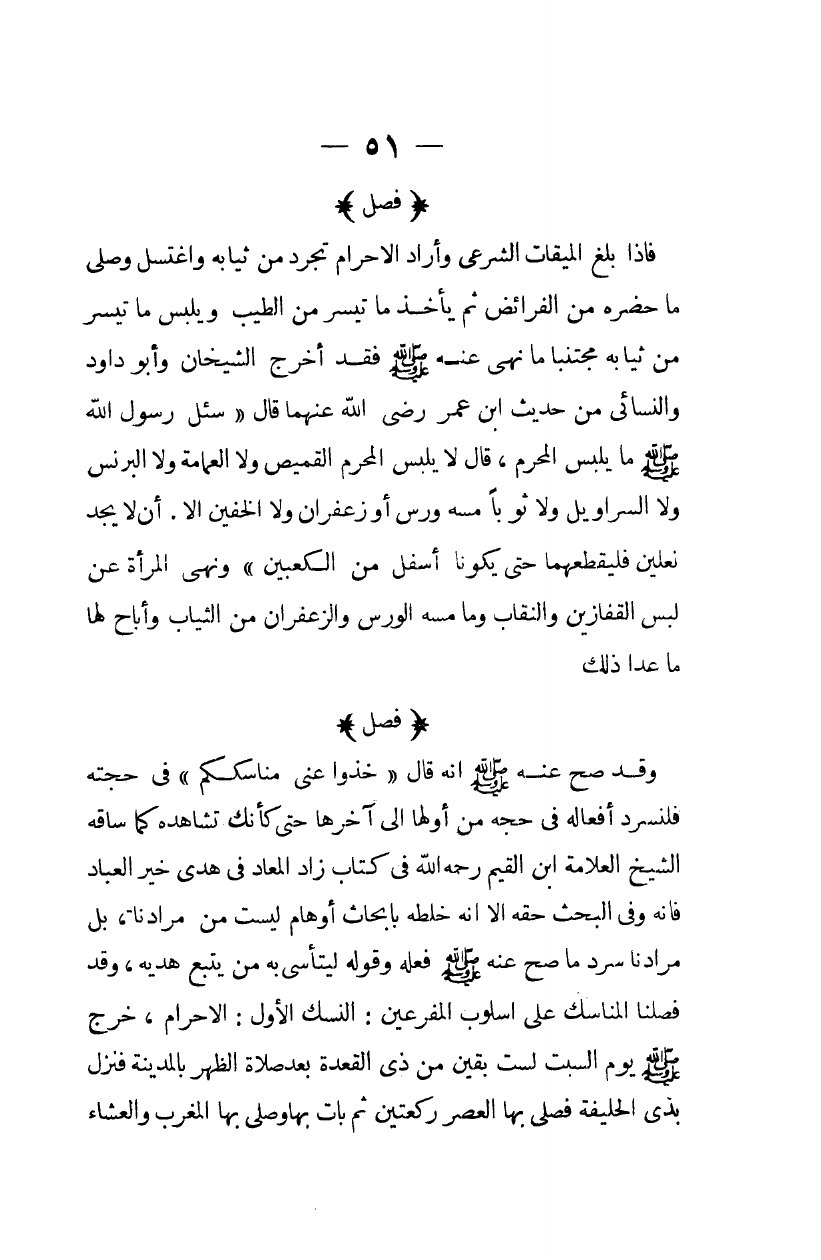 — ٥١ —
﴿ فصل ﴾
فاذا بلغ الميقات الشرعى وأراد الاحرام تجرد من ثيابه واغتسل وصلى
ما حضره من الفرائض ثم يأخذ ما تيسر من الطيب ويلبس ما تيسر
من ثيابه مجتنبا ما نهى عنه ﷺ فقد أخرج الشيخان وأبو داود
والنسائى من حديث ابن عمر رضى الله عنهما قال « سئل رسول الله
ﷺ ما يلبس المحرم ، قال لا يلبس المحرم القميص ولا العمامة ولا البرنس
ولا السراويل ولا ثوباً مسه ورس أو زعفران ولا الخفين الا . أن لا يجد
نعلين فليقطعهما حتى يكونا أسفل من الكعبين » ونهى المرأة عن
لبس القفازين والنقاب وما مسه الورس والزعفران من الثياب وأباح لها
ما عدا ذلك
﴿ فصل ﴾
وقد صح عنه ﷺ انه قال « خذوا عنى مناسككم » فى حجته
فلنسرد أفعاله فى حجه من أولها الى آخرها حتى كأنك تشاهده كما ساقه
الشيخ العلامة ابن القيم رحمه الله فى كتاب زاد المعاد فى هدى خير العباد
فانه وفى البحث حقه الا انه خلطه بابحاث أوهام ليست من مرادنا ، بل
مرادنا سرد ما صح عنه ﷺ فعله وقوله ليتأسى به من يتبع هديه ، وقد
فصلنا المناسك على اسلوب المفرعين : النسك الأول : الاحرام ، خرج
ﷺ يوم السبت لست بقين من ذى القعدة بعد صلاة الظهر بالمدينة فنزل
بذى الحليفة فصلى بها العصر ركعتين ثم بات بها وصلى بها المغرب والعشاء